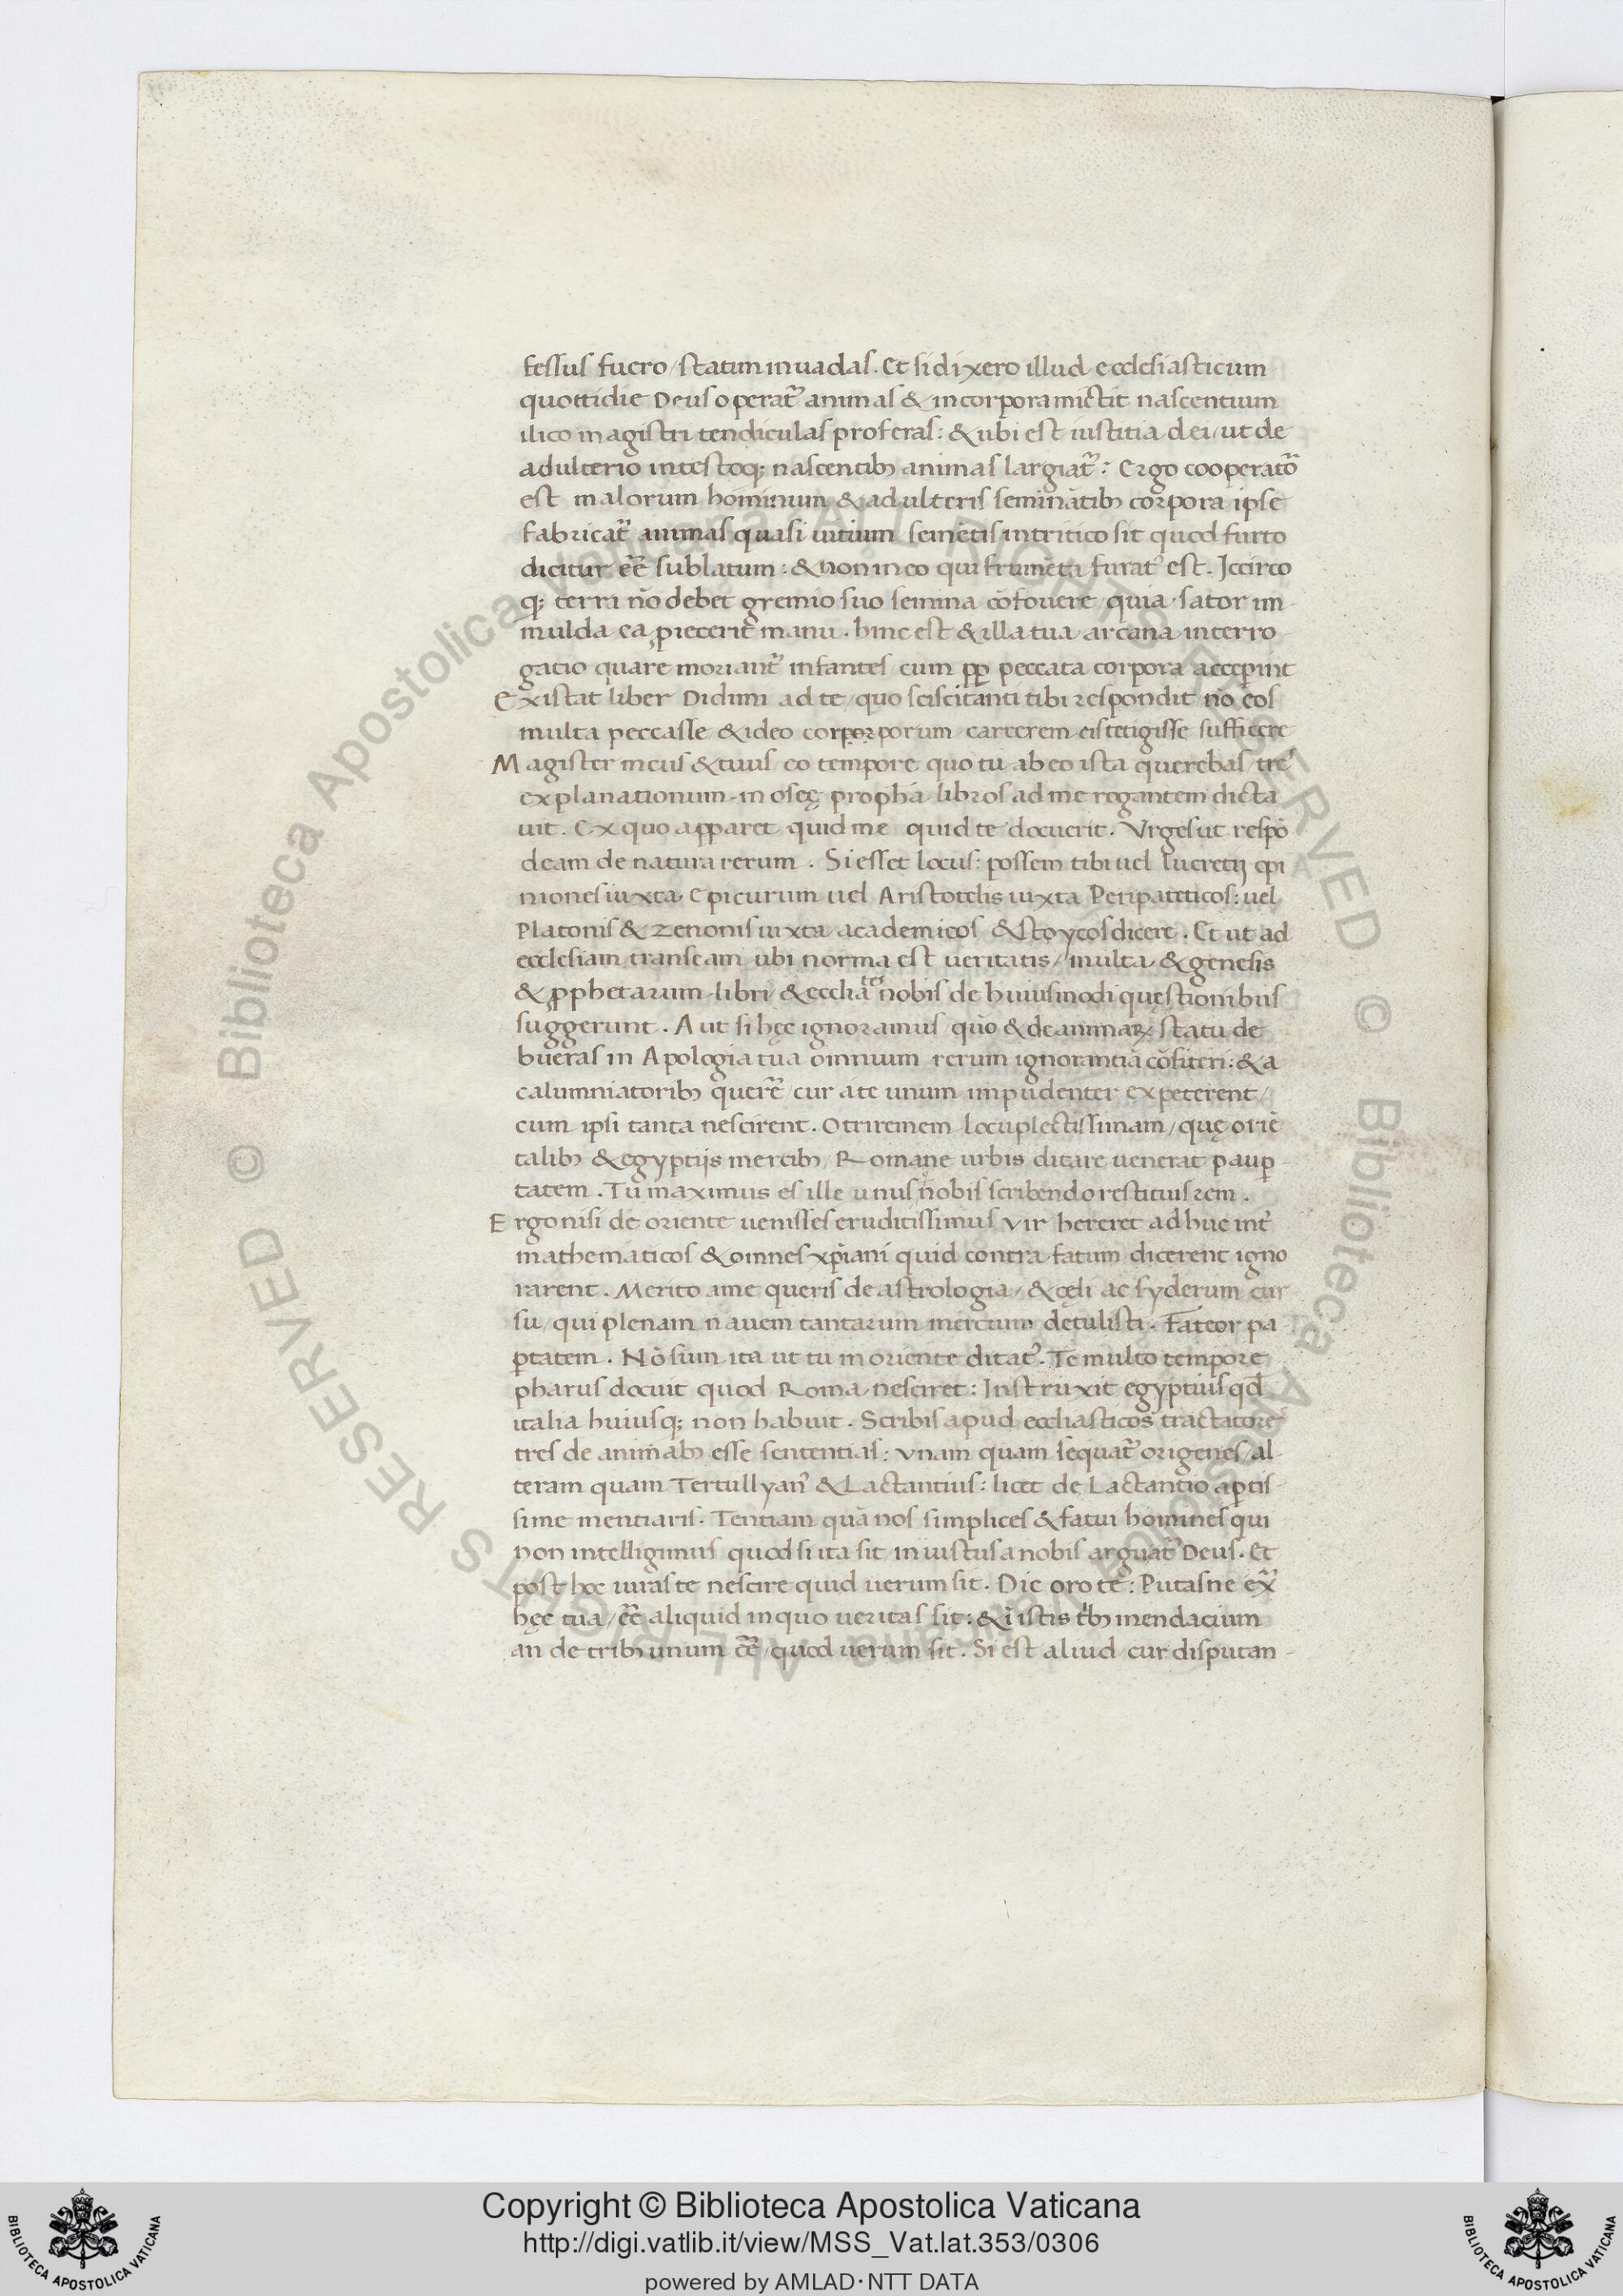 fessus fuero / statim inuadas. Et si dixero illud ecclesiasticum
quottidie Deus operat᷒ animas & in corpora mictit nascentium
ilico magistri tendiculas proferas: & ubi est iustitia dei / ut de
adulterio intestoq; nascentib᷒ animas largiat᷒: Ergo cooperatō
est malorum hominum & adulteris seminātib᷒ corpora ipse
fabricat᷒ animas quasi uitium semētis in tritico sit quod furto
dicitur eē sublatum: & non in eo qui frumēta furat᷒ est. Iccirco
q; terra nō debet gremio suo semina cōfouere / quia sator im
mulda ea ꝓiecerit manu. hinc est & illa tua arcana interro
gatio quare moriant᷒ infantes / cum ꝓp peccata corpora acceꝑint
Existat liber Didimi ad te / quo sciscitanti tibi respondit nō eos
multa peccasse & ideo corporporum carcerem eis tetigisse sufficere
Magister meus & tuus eo tempore quo tu ab eo ista querebas / tres
explanationum in oseę propha libros ad me rogantem dicta
uit. Ex quo apparet quid me quid te docuerit. Vrges ut respō
deam de natura rerum. Si esset locus: possem tibi uel lucretij opi
niones iuxta Epicurum uel Aristotelis iuxta Peripateticos: uel
Platonis & Zenonis iuxta academicos & stoycos dicere. Et ut ad
ecclesiam transeam ubi norma est ueritatis / multa & genesis
& ꝓphetarum libri & ecclia tes nobis de huiusmodi quęstionibus
suggerunt. Aut si hęc ignoramus / quō & de animaꝝ statu de
bueras in Apologia tua omnium rerum ignorantiā cōfiteri: & a
calumniatorib᷒ querē / cur a te unum impudenter expeterent /
cum ipsi tanta nescirent. O triremem locuplectissimam / quę oriē
talib᷒ & egyptijs mercib᷒ / Romane urbis ditare uenerat pauꝑ
tatem. Tu maximus es ille unus nobis scribendo restituis rem.
Ergo nisi de oriente uenisses eruditissimus vir hereret adhuc int᷒
mathematicos & omnes xp̄iani quid contra fatum dicerent igno
rarent. Merito a me queris de astrologia / & cęli ac syderum cur
su / qui plenam nauem tantarum mercium detulisti. Fateor pa
ꝑtatem. Nō sum ita ut tu in oriente ditat᷒. Te multo tempore
pharus docuit quod Roma nesciret: Instruxit egyptius qd
italia huiusq; non habuit. Scribis apud eccliasticos tractatores
tres de animab᷒ esse sententias: vnam quam sequat᷒ origenes / al
teram quam Tertullyan᷒ & Lactantius: licet de Lactantio aꝑtis
sime mentiaris. Tentiam quā nos simplices & fatui homines qui
non intelligimus quod si ita sit iniustus a nobis arguat᷒ Deus. Et
post hoc iuras te nescire quid uerum sit. Dic oro te: Putasne ex᷒
hęc tua / eē aliquid in quo ueritas sit: & ī istis trib᷒ mendacium
an de trib᷒ unum eē / quod uerum sit. Si est aliud cur disputan
Copyright © Biblioteca Apostolica Vaticana
http://digi.vatlib.it/view/MSS_Vat.lat.353/0306
powered by AMLAD·NTT DATA